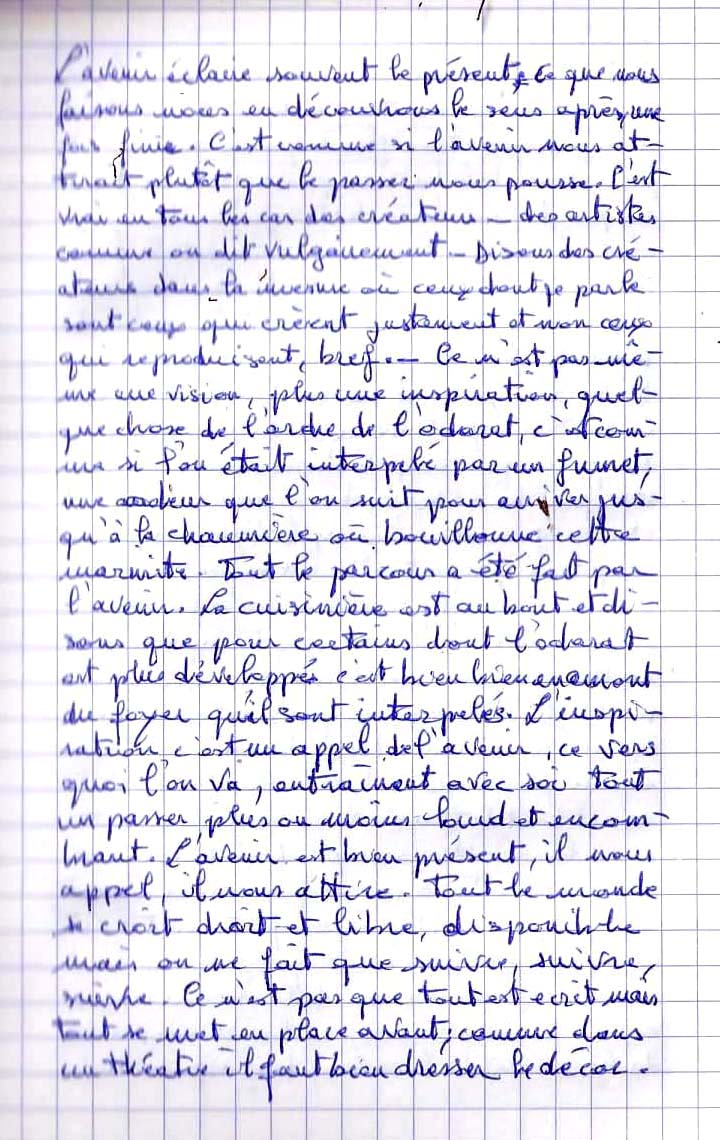 L'avenir éclaire souvent le présent, ce que nous
faisons nous en découvrons le sens après, une
fois finie. C'est comme si l'avenir nous at-
tirait plutôt que le passer nous pousse. C'est
vrai en tous les cas des créateurs - des artistes
comme on dit vulgairement - Disons des cré-
ateurs dans la mesure où ceux dont je parle
sont ceux qui crèent justement et non ceux
qui reproduisent, bref. - Ce n'est pas mê-
me une vision, plus une inspiration, quel-
que chose de l'ordre de l'odorat, c'est com-
me si l'on était interpelé par un fumet,
une odeur que l'on suit pour arriver jus-
qu'à la chaumière où bouillonne cette
marmite. Tout le parcours a été fait par
l'avenir. La cuisinière est au bout et di-
sons que pour certains dont l'odorat
est plus développés c'est bien bien en amont
du foyer qu'il sont interpelés. L'inspi-
ration c'est un appel de l'avenir, ce vers
quoi l'on va, entraînent avec soi tout
un passer plus ou moins lourd et encom-
brant. L'avenir est bien présent, il nous
appel, il nous attire. Tout le monde
se croit droit et libre, disponible
mais on ne fait que suivre, suivre,
suivre. Ce n'est pas que tout est ecrit mais
tout se met en place avant; comme dans
un théatre il faut bien dresser le décor.